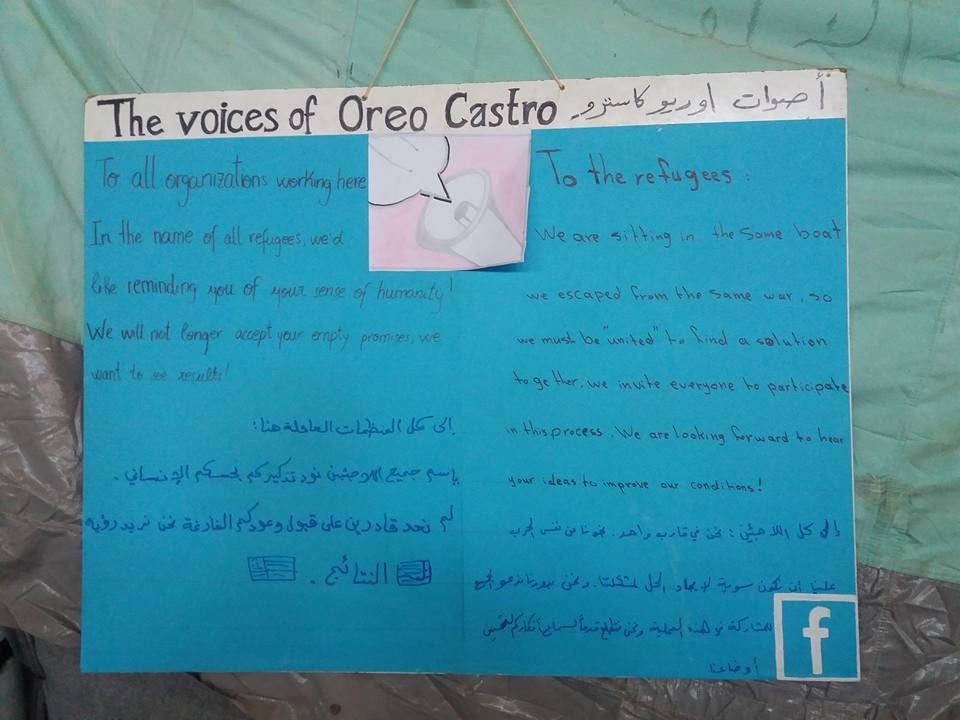 The voices of Oreo Castro أصوات اوريو كاسترو
To all organizations working here
In the name of all refugees, we'd
like reminding you of your sense of humanity!
We will not longer accept your empty promises, we
want to see results!
إلى كل المنظمات العاملة هنا:
بإسم جميع اللاجئين نود تذكيركم بحسكم الإنساني.
لم نعد قادرين على قبول وعودكم الفارغة نحن نريد رؤية
النتائج.
To the refugees:
We are sitting in the same boat
we escaped from the same war, so
we must be "united" to find a solution
together. we invite everyone to participate
in this process. We are looking forward to hear
your ideas to improve our conditions!
إلى كل اللاجئين: نحن في قارب واحد. نجونا من نفس الحرب
علينا ان نكون سوية لإيجاد الحل لمشكلتنا. ونحن بدورنا ندعو الجميع
للمشاركة في هذه العملية ونحن نتطلع قدماً لسماع أفكاركم لتحسين
أوضاعنا
f